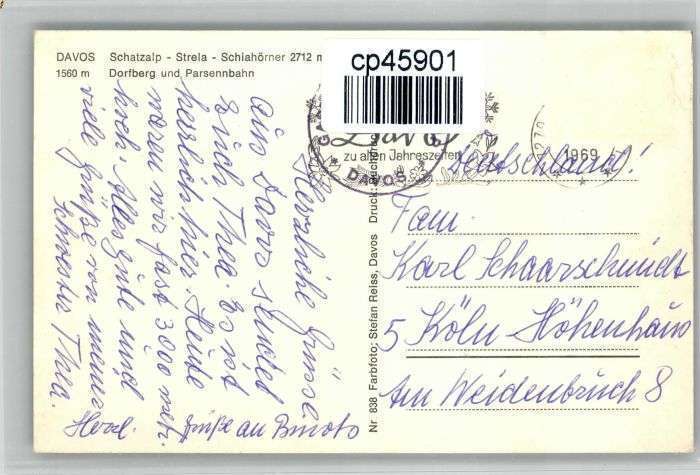 DAVOS Schatzalp - Strela - Schiahörner 2712 m
1560 m Dorfberg und Parsennbahn
cp45901
zu allen Jahreszeiten
DAVOS
1969
Herzliche Grüsse
Aus Davos sendet
Euch Thea. Es ist
herrlich hier. Heute
waren wir fast 3000 mtr.
hoch. Alles gute und
viele Grüße von meiner
Schwester Thea.
Herzl. Grüße an
Nr 838 Farbfoto: Stefan Reiss, Davos Druck:
Deutschland!
Fam.
Karl Schaarschmidt
5 Köln-Höhenhaus
Am Weidenbruch 8